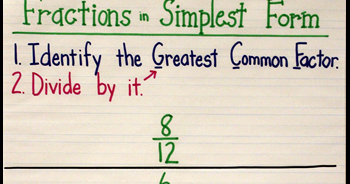 Fractions in Simplest Form
1. Identify the Greatest Common Factor.
2. Divide by it.
8
12